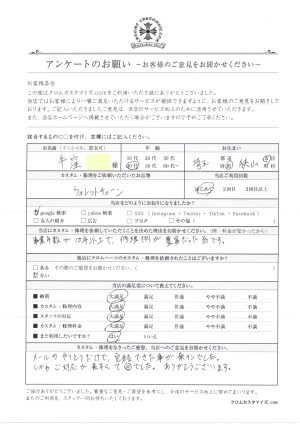 アンケートのお願い ～お客様のご意見をお聞かせください～
お客様各位
この度はクロムカスタマイズ.comをご利用いただき誠にありがとうございました。
当店ではお客様により一層ご満足いただけるサービスが提供できますように、お客様のご意見をお聞きして
おります。ご記入いただきましたご意見は、当店のサービス向上のために活用させていただきます。
また、当店ホームページへ掲載させていただく場合がございますので予めご了承ください。
該当するものに○を付け、空欄にはご記入ください。
お名前（イニシャル、匿名可） 年 齢 お住まい
様 10代 20代 30代 40代 50代 60代 埼玉 都道府県 狭山 市区町村
カスタム・修理を依頼いただいたお品物 ご依頼回数
ウォレットチェーン はじめて 2回目 3回目以上
当店をどのようにお知りになりましたか？
google 検索 yahoo 検索 SNS（Instagram・Twitter・TikTok・Facebook）
友人の紹介 広告 ブログ その他（ ）
当店にカスタム・修理を依頼していただこうと決めた理由をお聞かせください。（例：料金が安かったから）
事業年数が10年以上で、修理例が豊富だった為です。
他店にクロムハーツのカスタム・修理を依頼されたことはございますか？
ある その際のご感想をお聞かせください。（ ）
ない
当店の満足度について教えてください。
■ 納期 大満足 満足 普通 やや不満 不満
■ カスタム・修理内容 大満足 満足 普通 やや不満 不満
■ スタッフの対応 大満足 満足 普通 やや不満 不満
■ カスタム・修理料金 大満足 満足 普通 やや不満 不満
■ また利用したいですか？ はい いいえ
カスタム・修理をなさったご感想、当店へのご意見をお聞かせください。
メールのやりとりだけで、完結できた事が楽でした。
しかもご対応が素早くて 助かりました。ありがとうございます。
ご協力ありがとうございました。貴重なご意見・ご要望を参考にし、今後のサービス向上に努めてまいります。
またのご利用を、スタッフ一同お待ちいたしております。
クロムカスタマイズ.com